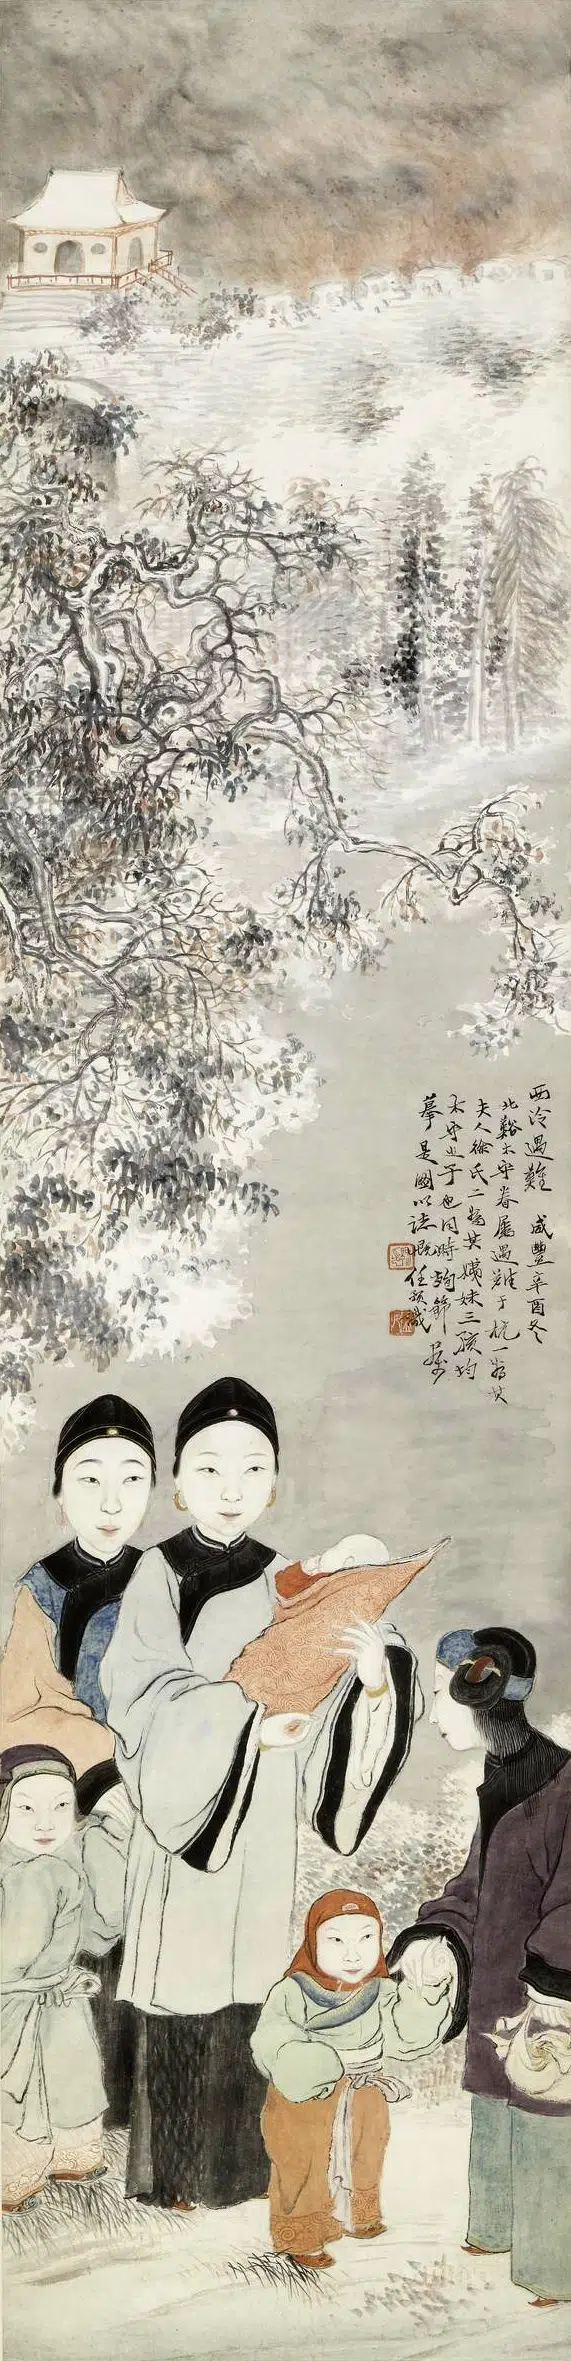 西泠遇難 咸豐辛酉冬
北谿太守眷屬遇難于杭一為其
夫人徐氏二為其姨妹三孩均
太守之子也同時殉節屬
摹是圖以誌慨任頤識